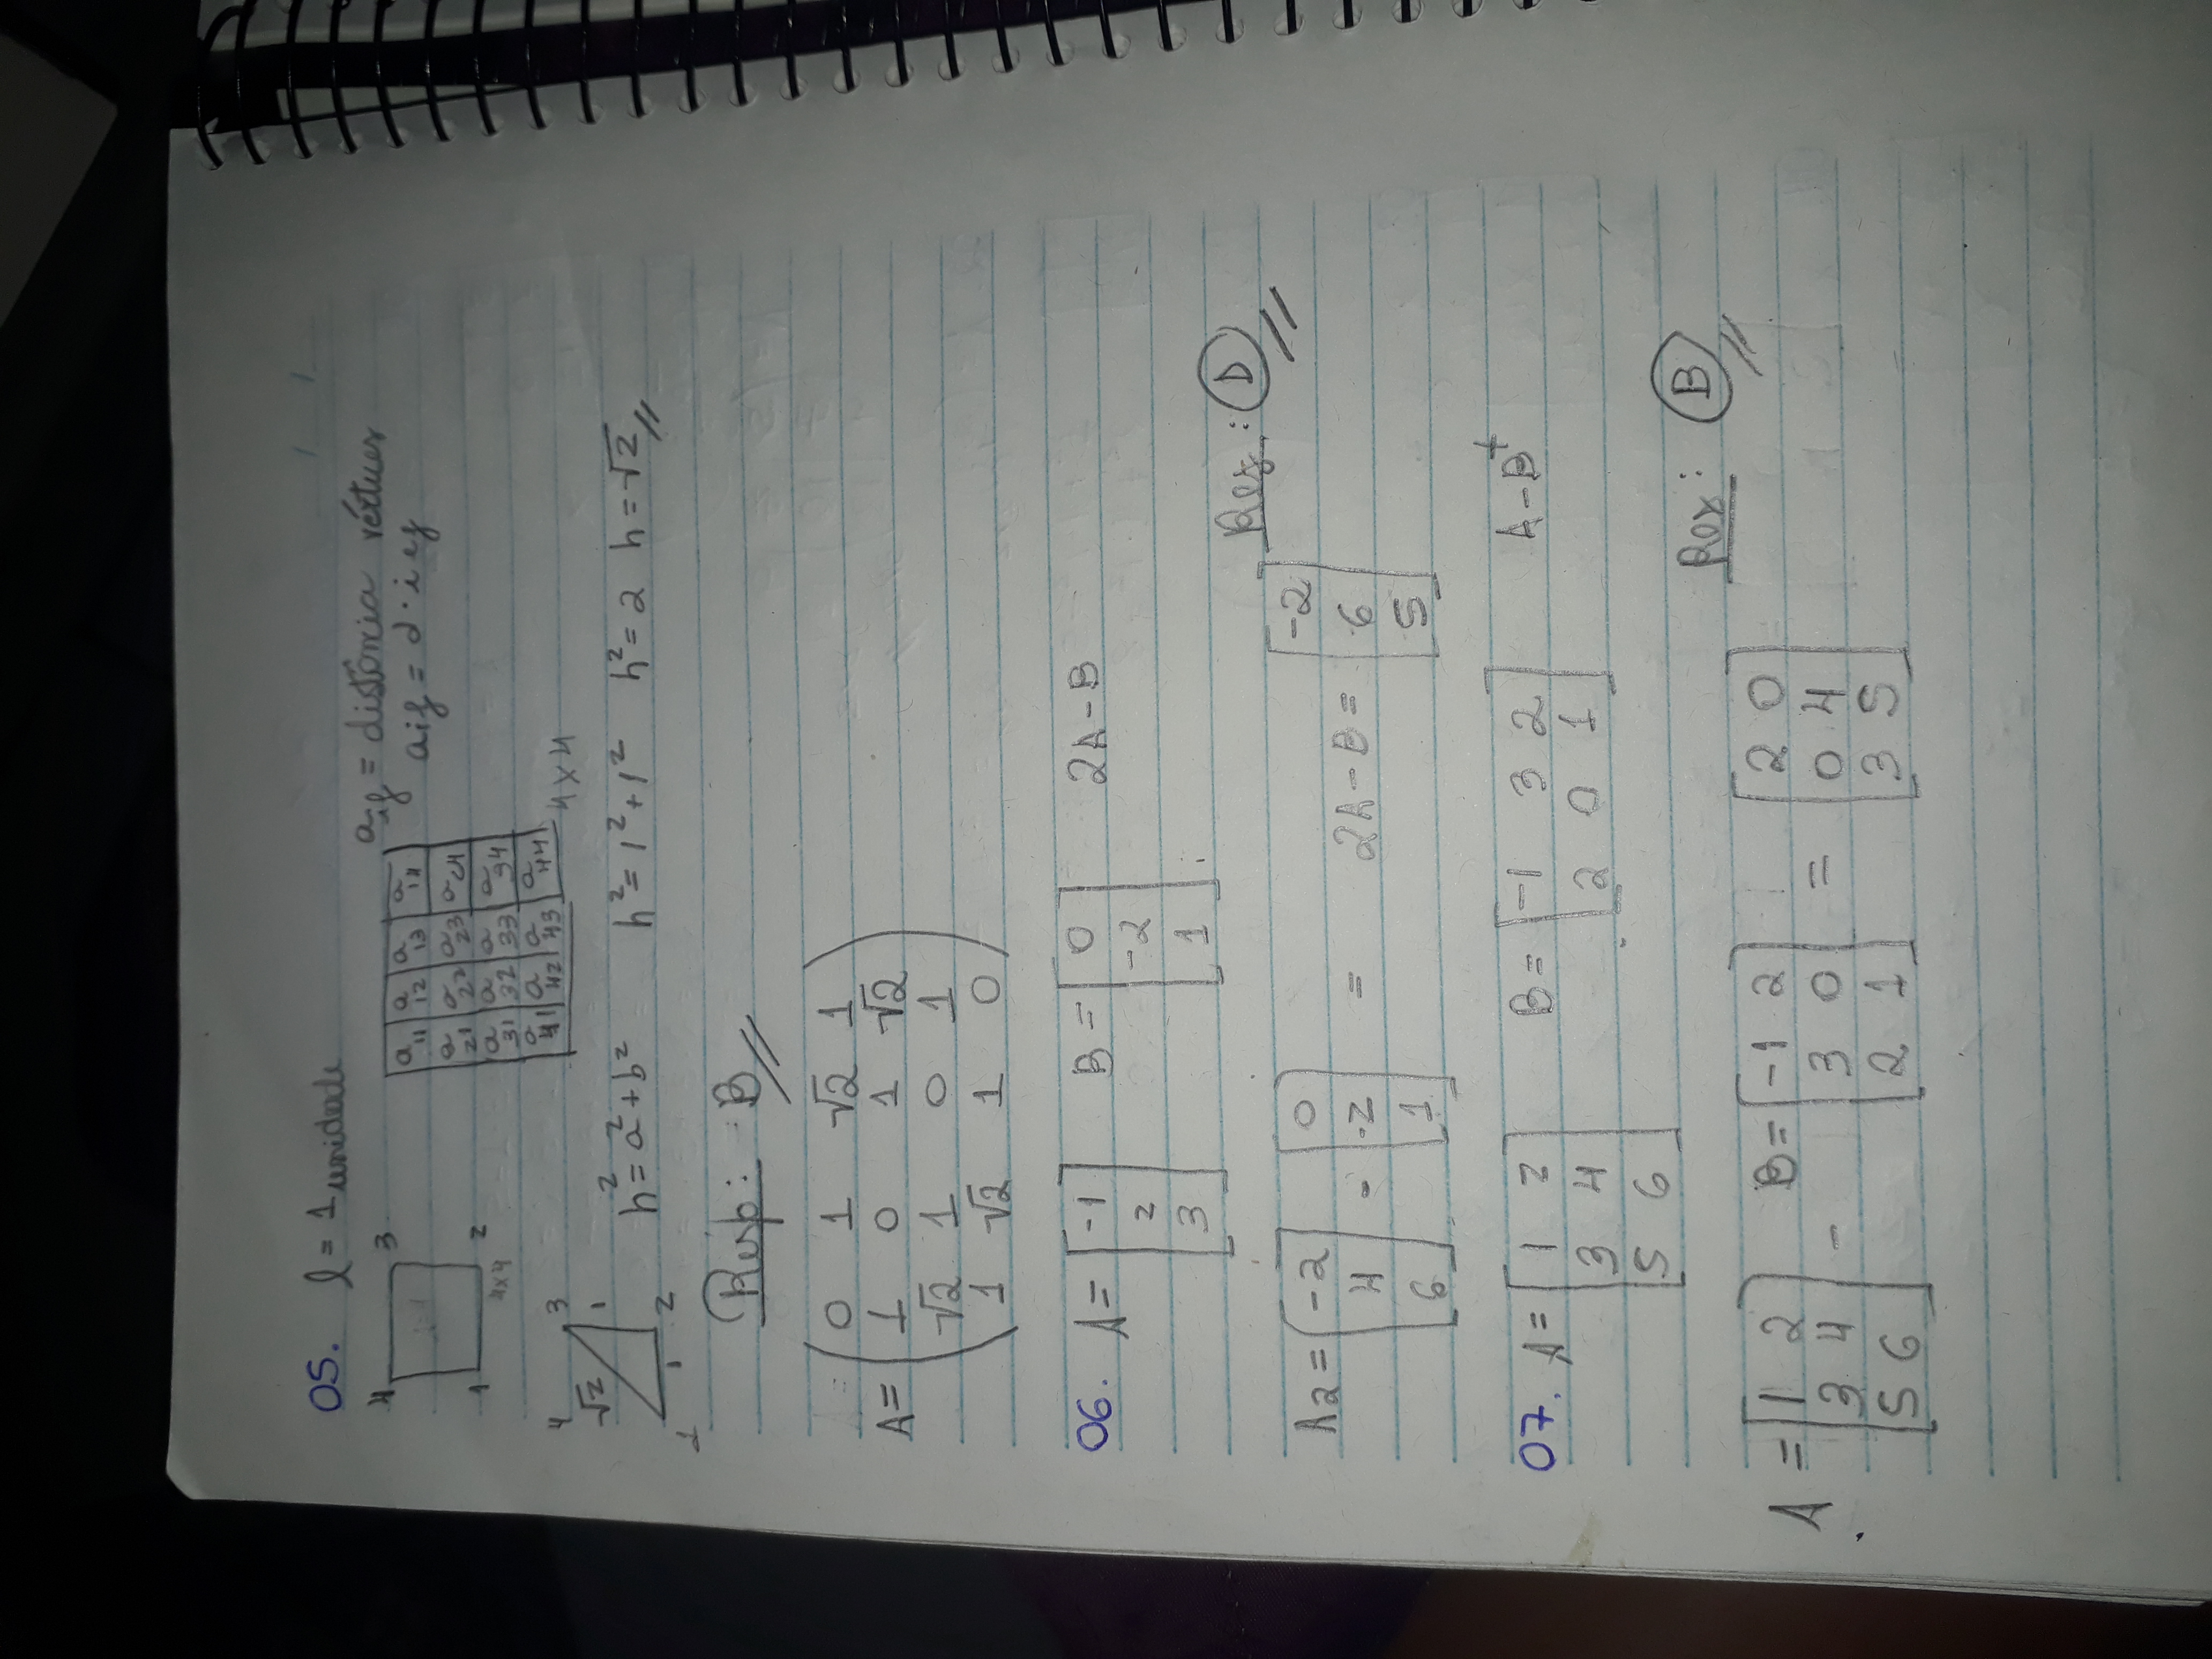 05. l = 1 unidade
4 3
1 2
4x4
a11 a12 a13 a14
a21 a22 a23 a24
a31 a32 a33 a34
a41 a42 a43 a44
4x4
aij = distância vértices
aij = d. i e j
4 3
√2 1
1 1 2
h² = a² + b² h² = 1² + 1² h² = 2 h = √2 //
Resp: B //
A = ( 0 1 √2 1
1 0 1 √2
√2 1 0 1
1 √2 1 0 )
06. A = [ -1 2 3 ] B = [ 0 -2 1 ] 2A - B
Res: D //
A2 = [ -2 4 6 ] - [ 0 -2 1 ] = 2A - B = [ -2 6 5 ]
07. A = [ 1 2 B = [ -1 3 2 A - Bt
3 4 2 0 1 ]
5 6 ]
Res: B //
A = [ 1 2 - B = [ -1 2 = [ 2 0
3 4 3 0 0 4
5 6 ] 2 1 ] 3 5 ]